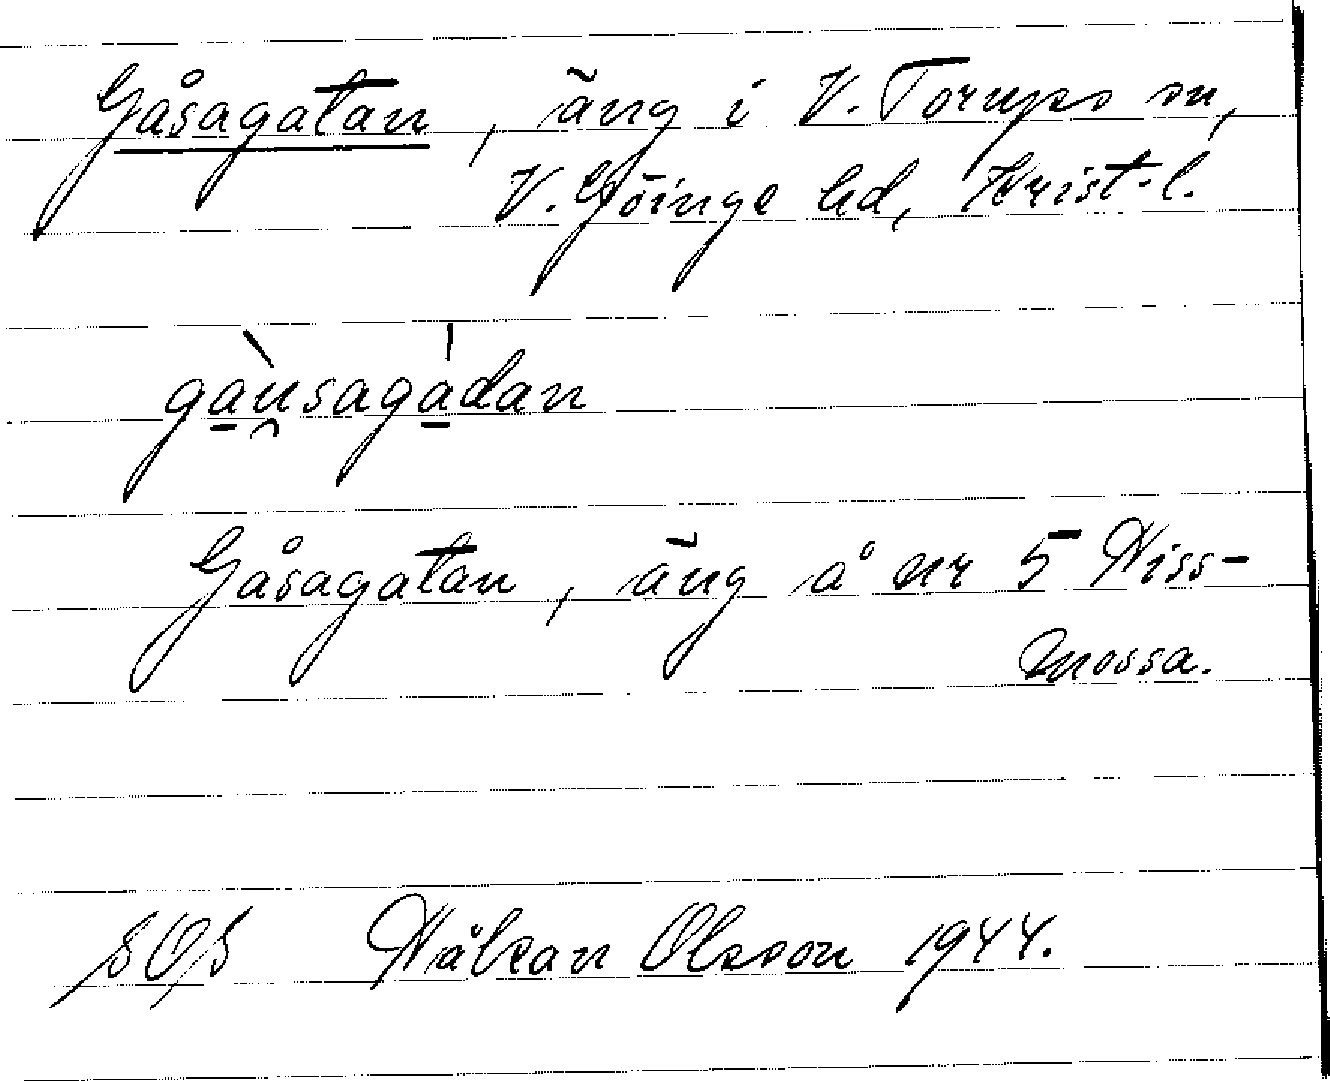 Gåsagatan, äng i V. Torups sn,
V. Göinge hd, Krist-l.
gàu̯sagádan
Gåsagatan, äng å nr 5 Hiss-
mossa.
SOS Håkan Olsson 1944.